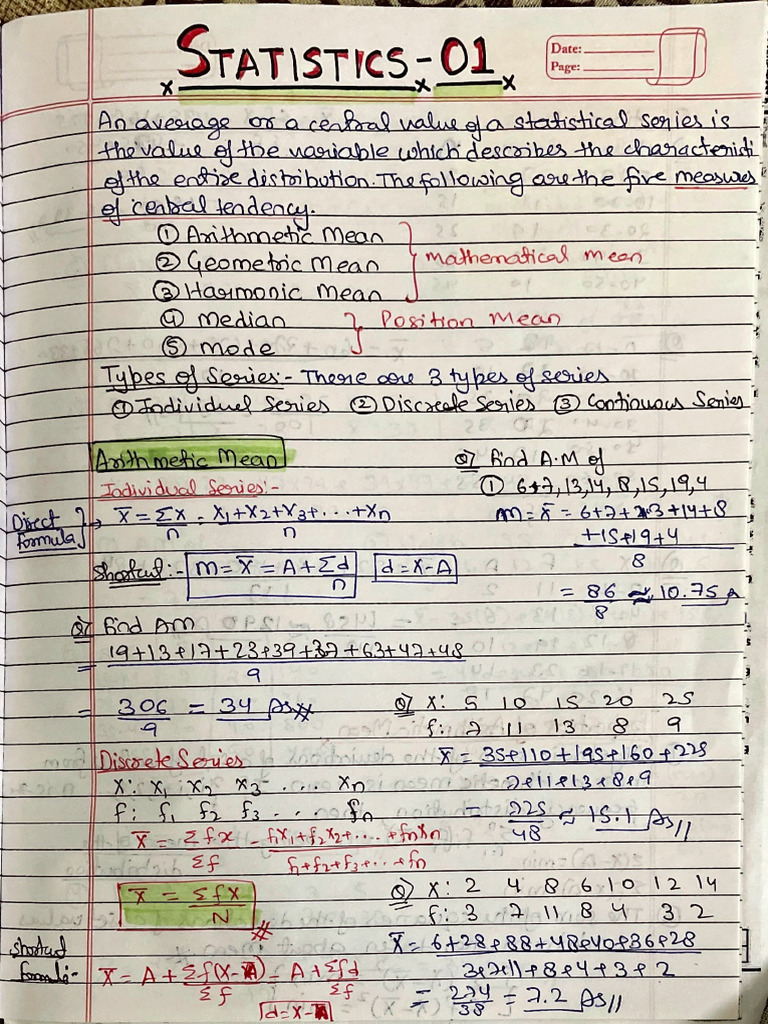 STATISTICS-01
Date:
Page:
An average or a central value of a statistical series is
the value of the variable which describes the characteristi
of the entire distribution. The following are the five measures
of central tendency.
① Arithmetic Mean
② Geometric Mean
③ Harmonic Mean
Mathematical mean
④ Median
⑤ Mode
Position Mean
Types of Series:- There are 3 types of series
① Individual Series ② Discrete Series ③ Continuous Series
Arithmetic Mean
Individual Series:-
Direct
formula
x̄ = Σx/n = x₁+x₂+x₃+...+xₙ/n
Shortcut:- M = x̄ = A + Σd/n d = x-A
Q) Find A.M of
① 6,7,13,14,8,15,19,4
M = x̄ = 6+7+13+14+8
+15+19+4
8
= 86/8 ≈ 10.75 A
Q) Find AM
= 19+13+17+23+39+37+63+47+48
9
= 306/9 = 34 As
Q) x: 5 10 15 20 25
f: 7 11 13 8 9
x̄ = 35+110+195+160+225
7+11+13+8+9
= 725/48 ≈ 15.1 As
Discrete Series
x: x₁ x₂ x₃ .... xₙ
f: f₁ f₂ f₃ ... fₙ
x̄ = Σfx/Σf = f₁x₁+f₂x₂+...+fₙxₙ/f₁+f₂+f₃+...+fₙ
x̄ = Σfx/N
Shortcut
formula:-
x̄ = A + Σf(x-A)/Σf = A + Σfd/Σf
d = x-A
Q) x: 2 4 8 6 10 12 14
f: 3 7 11 8 4 3 2
x̄ = 6+28+88+48+40+36+28
3+7+11+8+4+3+2
= 274/38 = 7.2 As